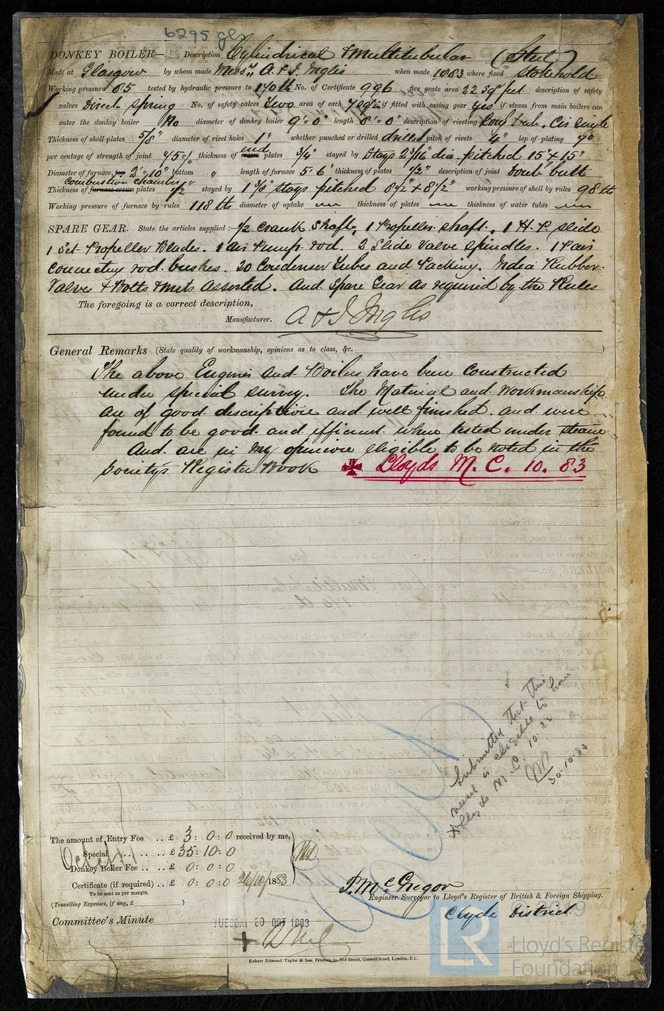 6295 gls
DONKEY BOILER— Description Cylindrical Multitubular (Steel)
Made at Glasgow by whom made Mess.rs A & J. Inglis when made 1883 where fixed Stokehold
Working pressure 85 tested by hydraulic pressure to 170 lb No. of Certificate 996 fire grate area 22 sq feet description of safety
valves Direct Spring No. of safety valves Two area of each if fitted with easing gear yes if steam from main boilers can
enter the donkey boiler No diameter of donkey boiler 9'.0" length 8'.0" description of riveting Cir. single
Thickness of shell plates 5/8" diameter of rivet holes 1" whether punched or drilled drilled pitch of rivets 4" lap of plating
per centage of strength of joint thickness of end plates 3/4" stayed by Stays dia. pitched 15" x 15"
Diameter of furnace, top 2'.10" bottom " length of furnace 5'.6" thickness of plates 1/2" description of joint Doub. butt
Combustion chamber
Thickness of furnace crown plates stayed by stays pitched 8 1/2 x 8 1/2 working pressure of shell by rules 98 lb
Working pressure of furnace by rules 118 lb diameter of uptake — thickness of plates — thickness of water tubes —
SPARE GEAR. State the articles supplied:— 1/2 Crank Shaft, 1 Propeller shaft, 1 H.P. slide
1 Set Propeller Blades. 1 Air Pump rod. 2 Slide Valve spindles. 1 Pair
Connecting rod bushes. 20 Condenser Tubes and Packing. India Rubber
Valves & Bolts & nuts assorted. and Spare Gear as required by the Rules
The foregoing is a correct description,
Manufacturer. A & J Inglis
General Remarks (State quality of workmanship, opinions as to class, &c. )
The above Engines and Boilers have been constructed
under special survey. The Material and workmanship
are of good description and well finished. and were
found to be good and efficient when tested under steam
And are in my opinion eligible to be noted in the
Society's Register Book ✠ Lloyds M. C. 10. 83
Submitted that this
vessel is eligible to have
✠ Lloyds M. C. 10.83
30.10.83
The amount of Entry Fee .. £ 3 : 0 : 0 received by me,
Special .. .. £ 35 : 10 : 0
Donkey Boiler Fee .. £ 0 : 0 : 0
Certificate (if required) .. £ 0 : 0 : 0 26/10/1883
To be sent as per margin.
(Travelling Expenses, if any, £ )
P. McGregor
Engineer Surveyor to Lloyd's Register of British & Foreign Shipping.
Clyde District
Committee's Minute
TUESDAY 30 OCT 1883
Robert Edmund Taylor & Son, Printers, 19, Old Street, Goswell Road, London, E.C.
LR
Lloyd's Register
Foundation